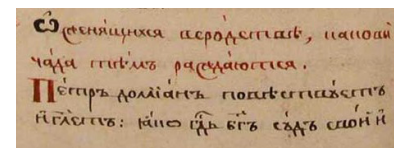 Ѽ женѧщихсѧ всро́дствѣ, каковы̀
ча́да тѣ́мъ ражда́ютсѧ.
Пе́тръ домїа́нъ повѣствꙋ́етъ
и҆ гл҃етъ: ꙗ҆́кѡ гд҇ь бг҃ъ сꙋ́дъ сво́й и҆